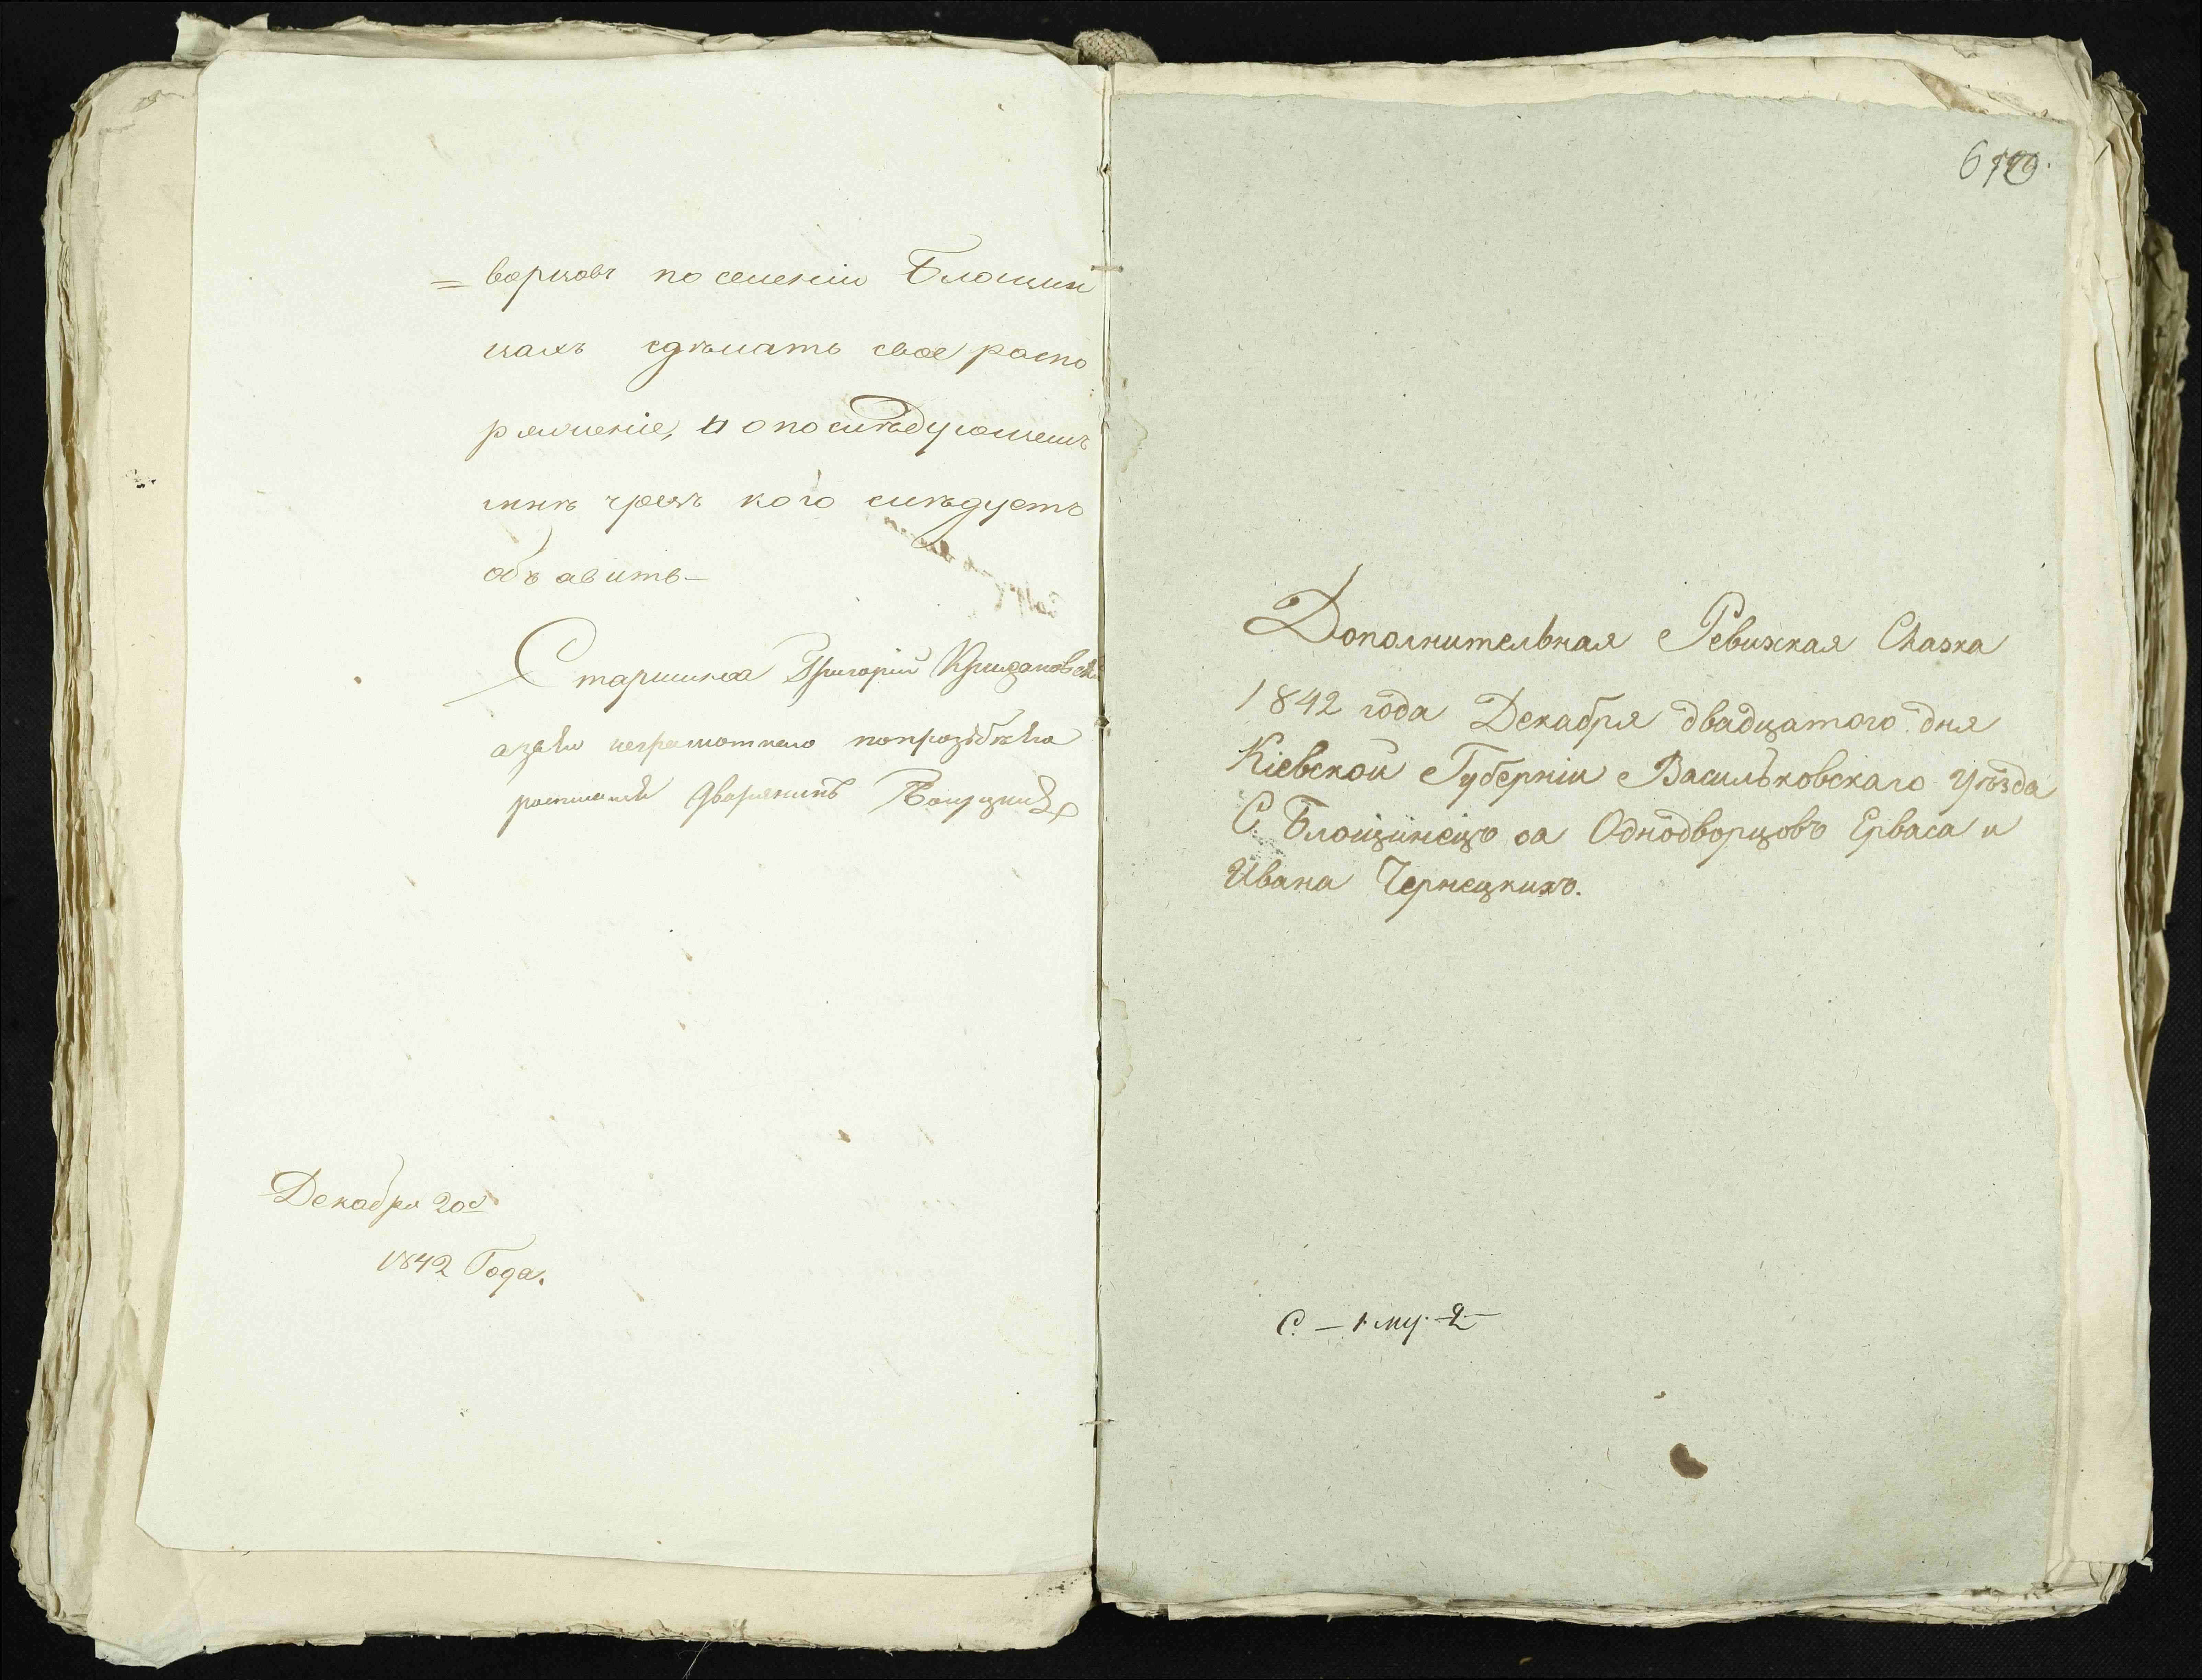 = ворцовъ по селенію Блощин
цахъ сдѣлать свое распо
ряженіе, и о послѣдующемъ
мнѣ чрезъ кого слѣдуетъ
объавить —
Старшина Григорій
а за его неграмотнаго по прозьбѣ его
росписался Дворянинъ
Декабря 20д
1842 Года.
Дополнительная Ревизкая Сказка
1842 года Декабря двадцатого дня
Кіевской Губерніи Васильковскаго Уѣзда
С. Блощинецъ оа Однодворцовъ Ерваса и
Ивана Чернецкихъ.
С. — 1 му. 2 —